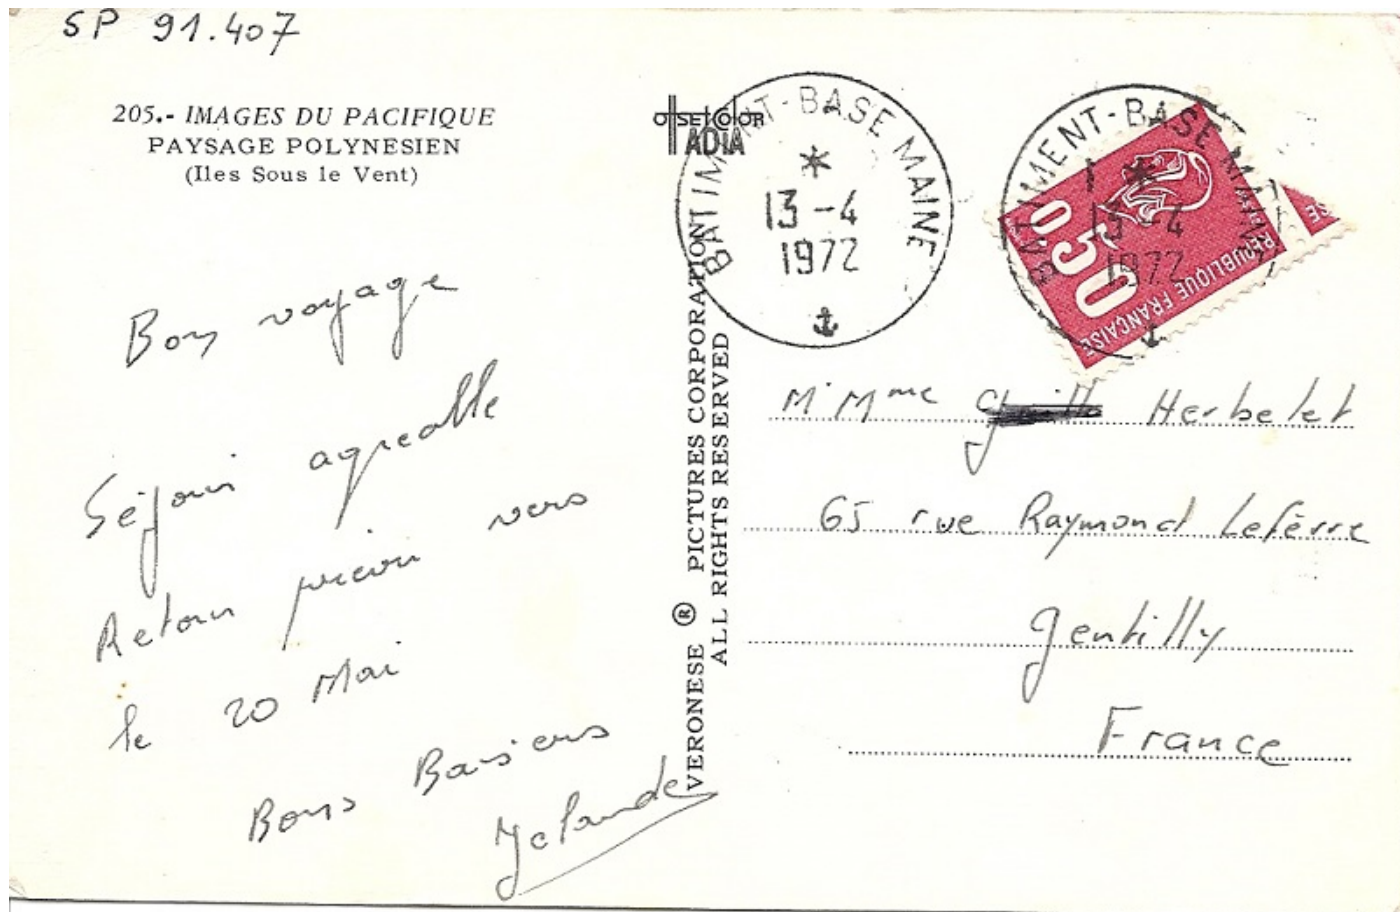 SP 91.407
205.- IMAGES DU PACIFIQUE
PAYSAGE POLYNESIEN
(Iles Sous le Vent)
Bon voyage
Séjour agreable
Retour prévu vers
le 20 Mai
Bons Baisers
Yolande
offsetcolor
ADIA
VERONESE ® PICTURES CORPORATION
ALL RIGHTS RESERVED
BATIMENT-BASE MAINE
13-4
1972
BATIMENT-BASE MAINE
13-4
1972
0,50
REPUBLIQUE FRANÇAISE
SE
M Mme Herbelet
65 rue Raymond Lefèvre
Gentilly
France